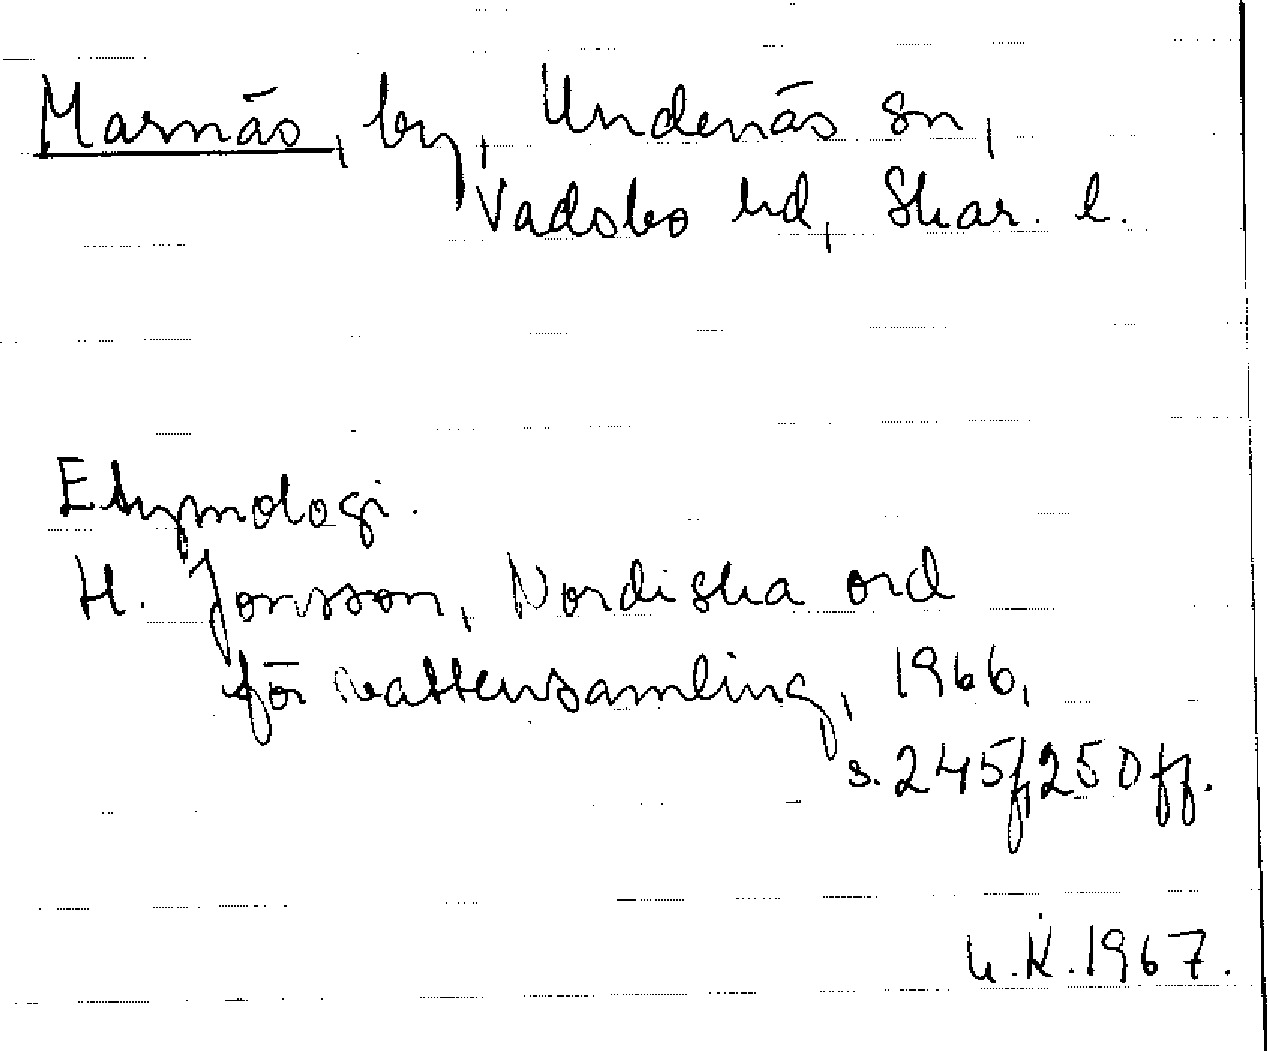 Marnäs, by, Undenäs sn,
Vadsbo hd, Skar. l.
Etymologi.
H. Jonsson, Nordiska ord
för vattensamling, 1966,
s. 245f, 250 ff.
U.K. 1967.